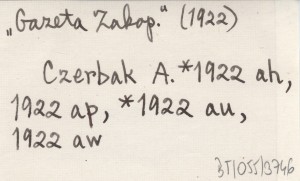 „Gazeta Zakop.” (1922)
Czerbak A. *1922 ah,
1922 ap, *1922 au,
1922 aw
BT/055/3746